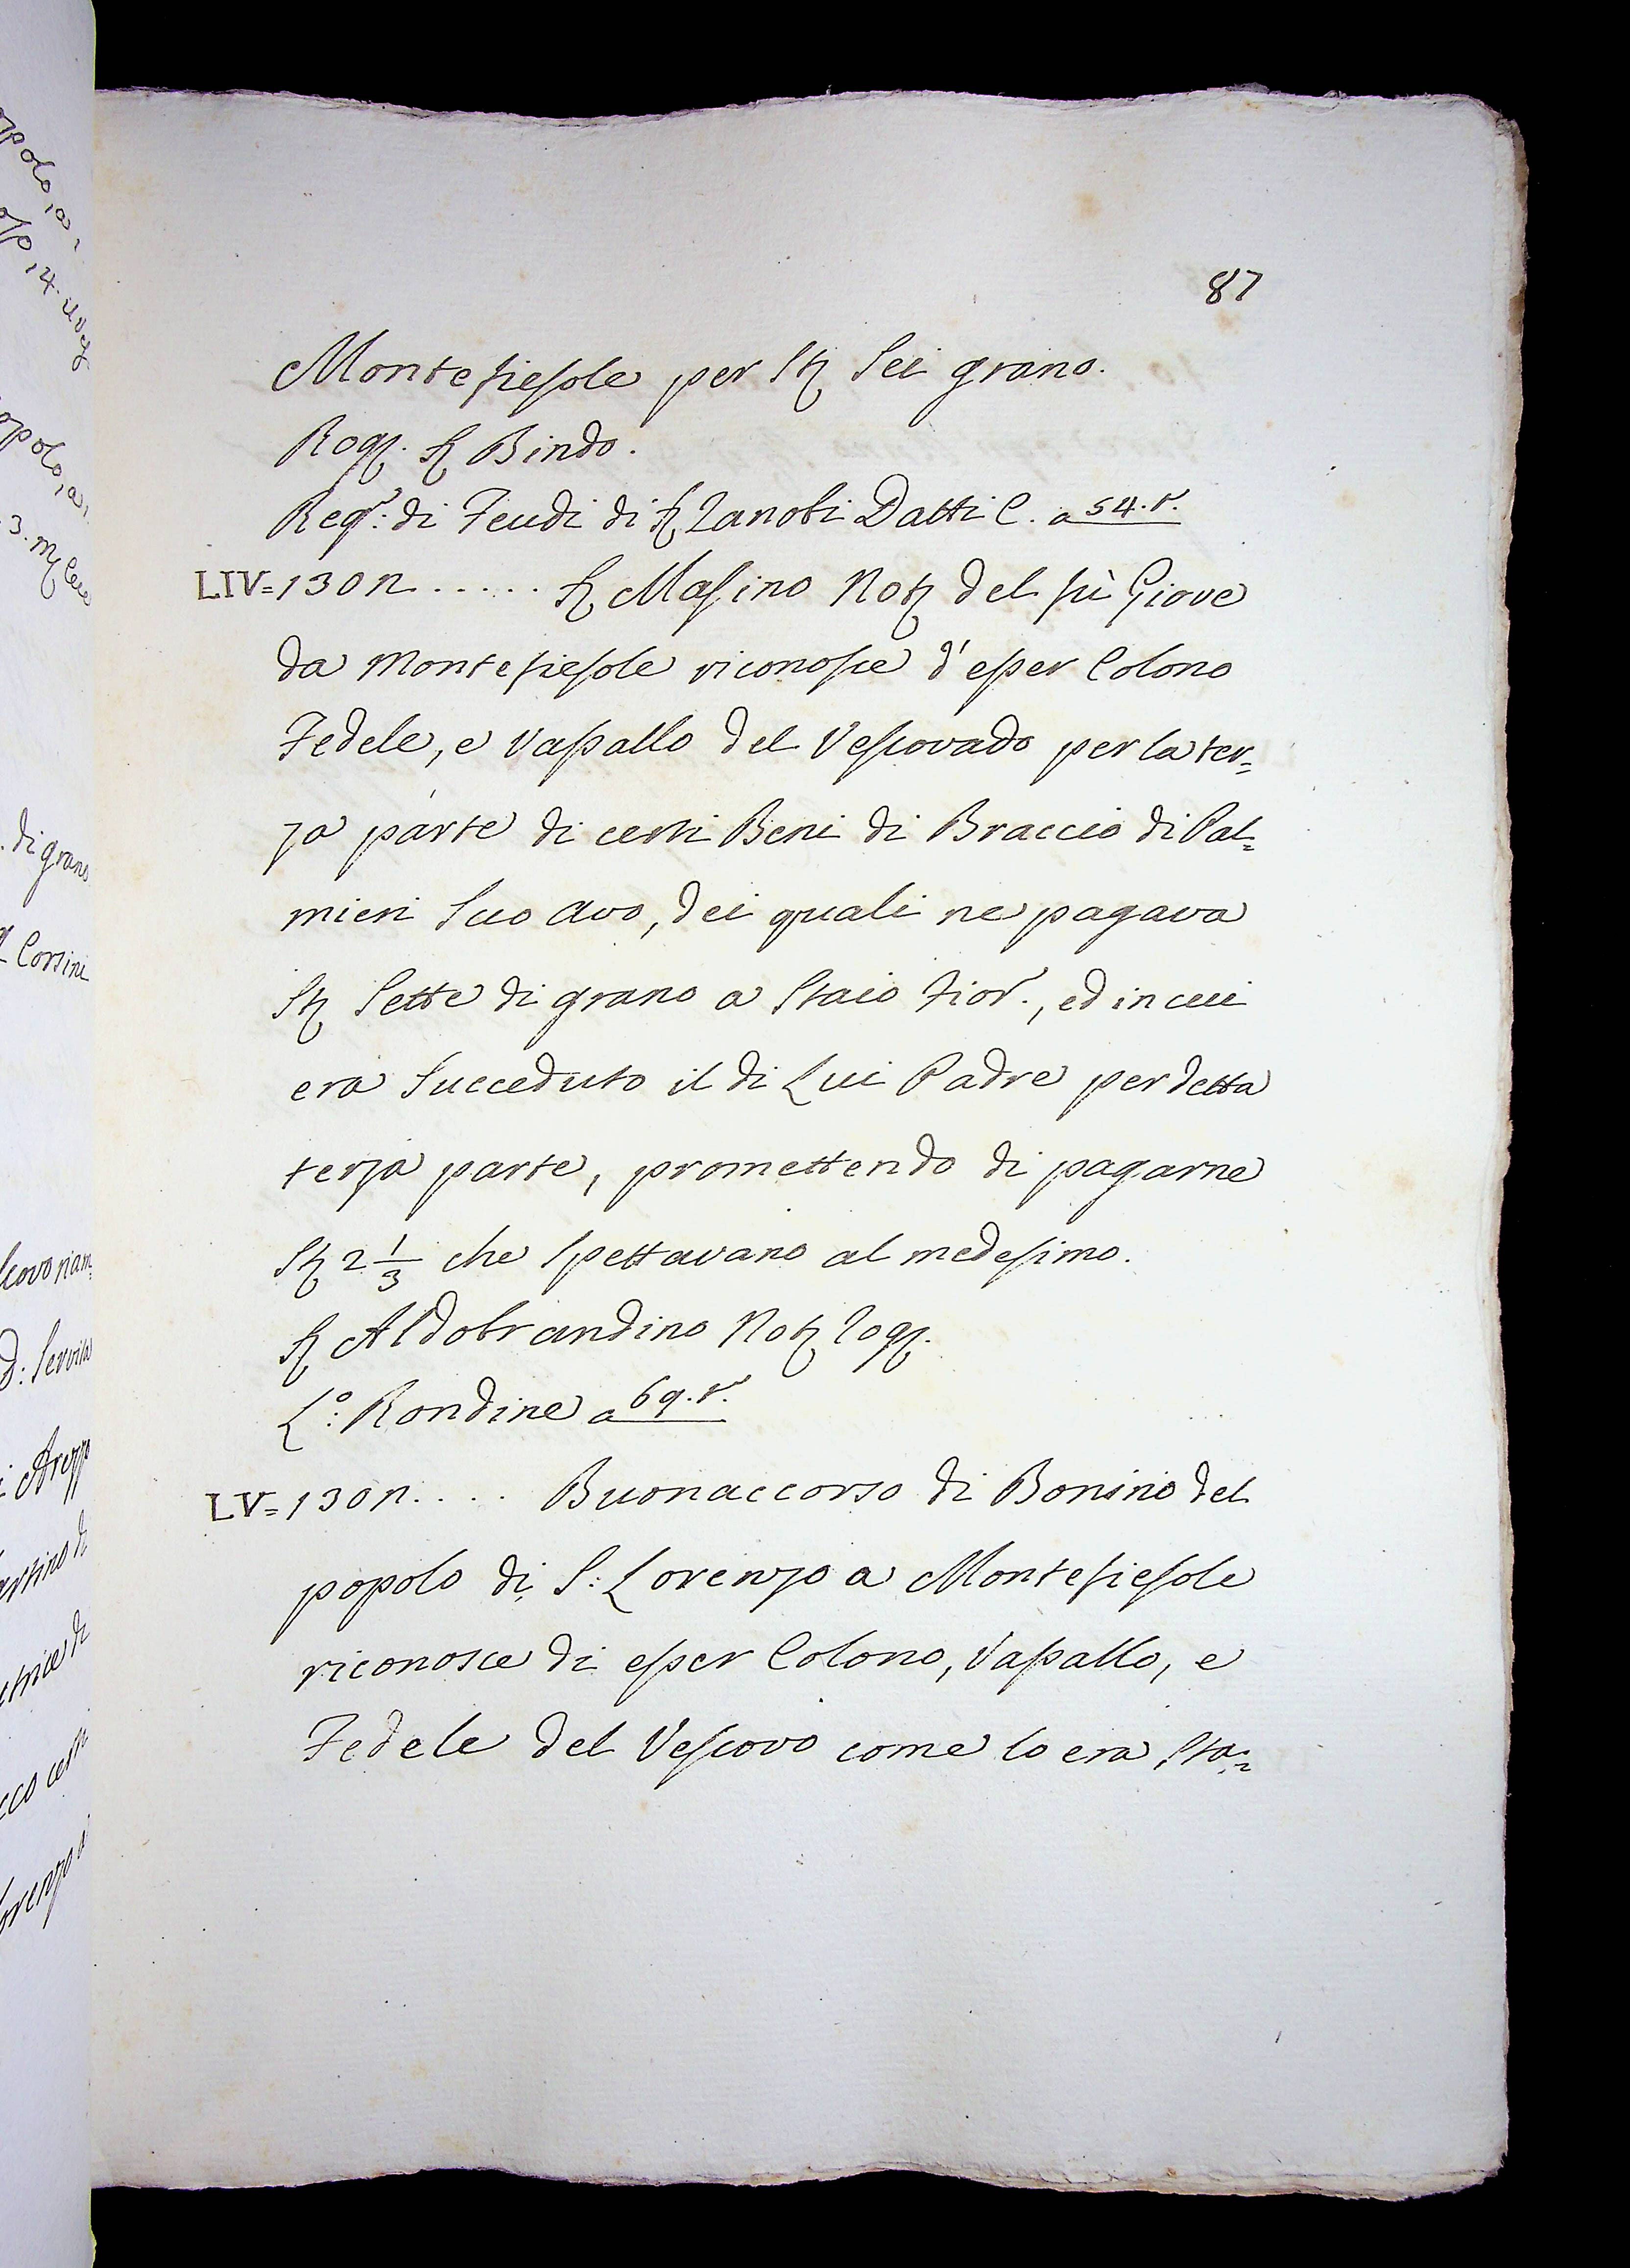 87
Montefiesole per St. Sei grano.
Rog. S. Bindo.
Regr. di Feudi di S. Zanobi Datti C. a 54.r.
LIV = 130n..... S. Masino Not. del fù Giove
da Montefiesole riconosce d'esser Colono
Fedele, e Vassallo del Vescovado per la ter=
za parte di certi Beni di Braccio di Pal=
mieri Suo Avo, dei quali ne pagava
St. Sette di grano a Staio Fior., ed in cui
era Succeduto il di Lui Padre per detta
terza parte, promettendo di pagarne
St. 2 1/3 che Spettavano al medesimo.
S. Aldobrandino Not. rog.
L.o: Rondine a 69.r.
LV = 130n.... Buonaccorso di Bonino del
popolo di S: Lorenzo a Montefiesole
riconosce di esser Colono, Vassallo, e
Fedele del Vescovo come lo era Sta=